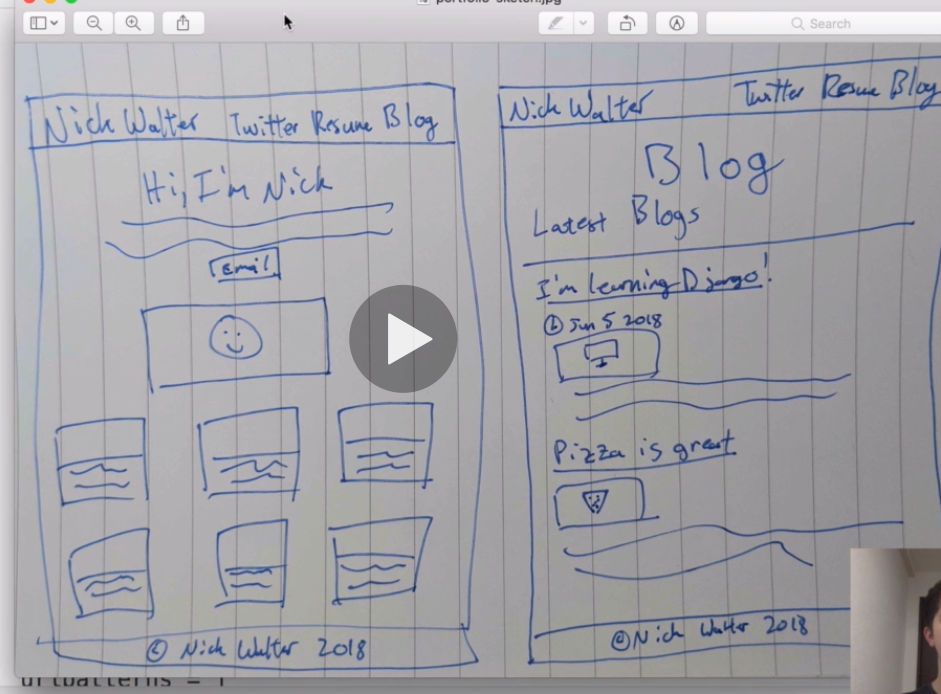 portfolio-sketch.jpg
Search
Nick Walter Twitter Resume Blog
Hi, I'm Nick
Email
© Nick Walter 2018
Nick Walter Twitter Resume Blog
Blog
Latest Blogs
I'm learning Django!
Jun 5 2018
Pizza is great
© Nick Walter 2018
urlpatterns = [